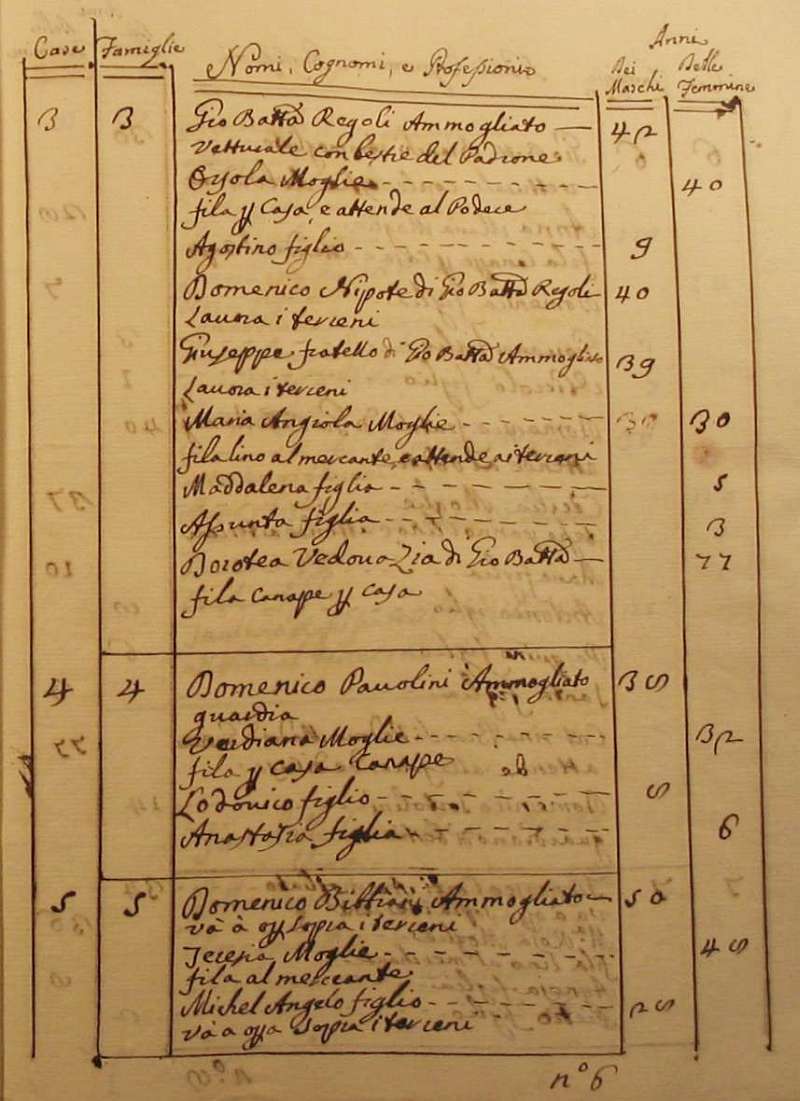 Case Famiglie Nomi, Cognomi, e Professioni Anni
Dei Maschi Delle Femmine
3 3 Gio Batta Regoli Ammogliato — 42
Vetturale con bestie del Padrone
Orsola Moglie 40
fila p Casa, e attende al Podere
Agostino figlio 9
Domenico Nipote di Gio Batta Regoli 40
Lauora i terreni
Giuseppe fratello di Gio Batta Ammogliato 39
Lauora i terreni
Maria Angiola Moglie 30
fila lino al mercante, e attende ai terreni
Maddalena figlia 5
Assunta figlia 3
Dorotea Vedoua Zia di Gio Batta — 77
fila Canape p casa
4 4 Domenico Pauolini Ammogliato 38
guardia
Verdiana Moglie 32
fila p casa Canape
Lodouico figlio 8
Anastasia figlia 6
5 5 Domenico Ammogliato 50
và à sopra i terreni
Teresia Moglie 48
fila al mercante
Michel Angelo figlio 28
và a sopra i terreni
n° 6